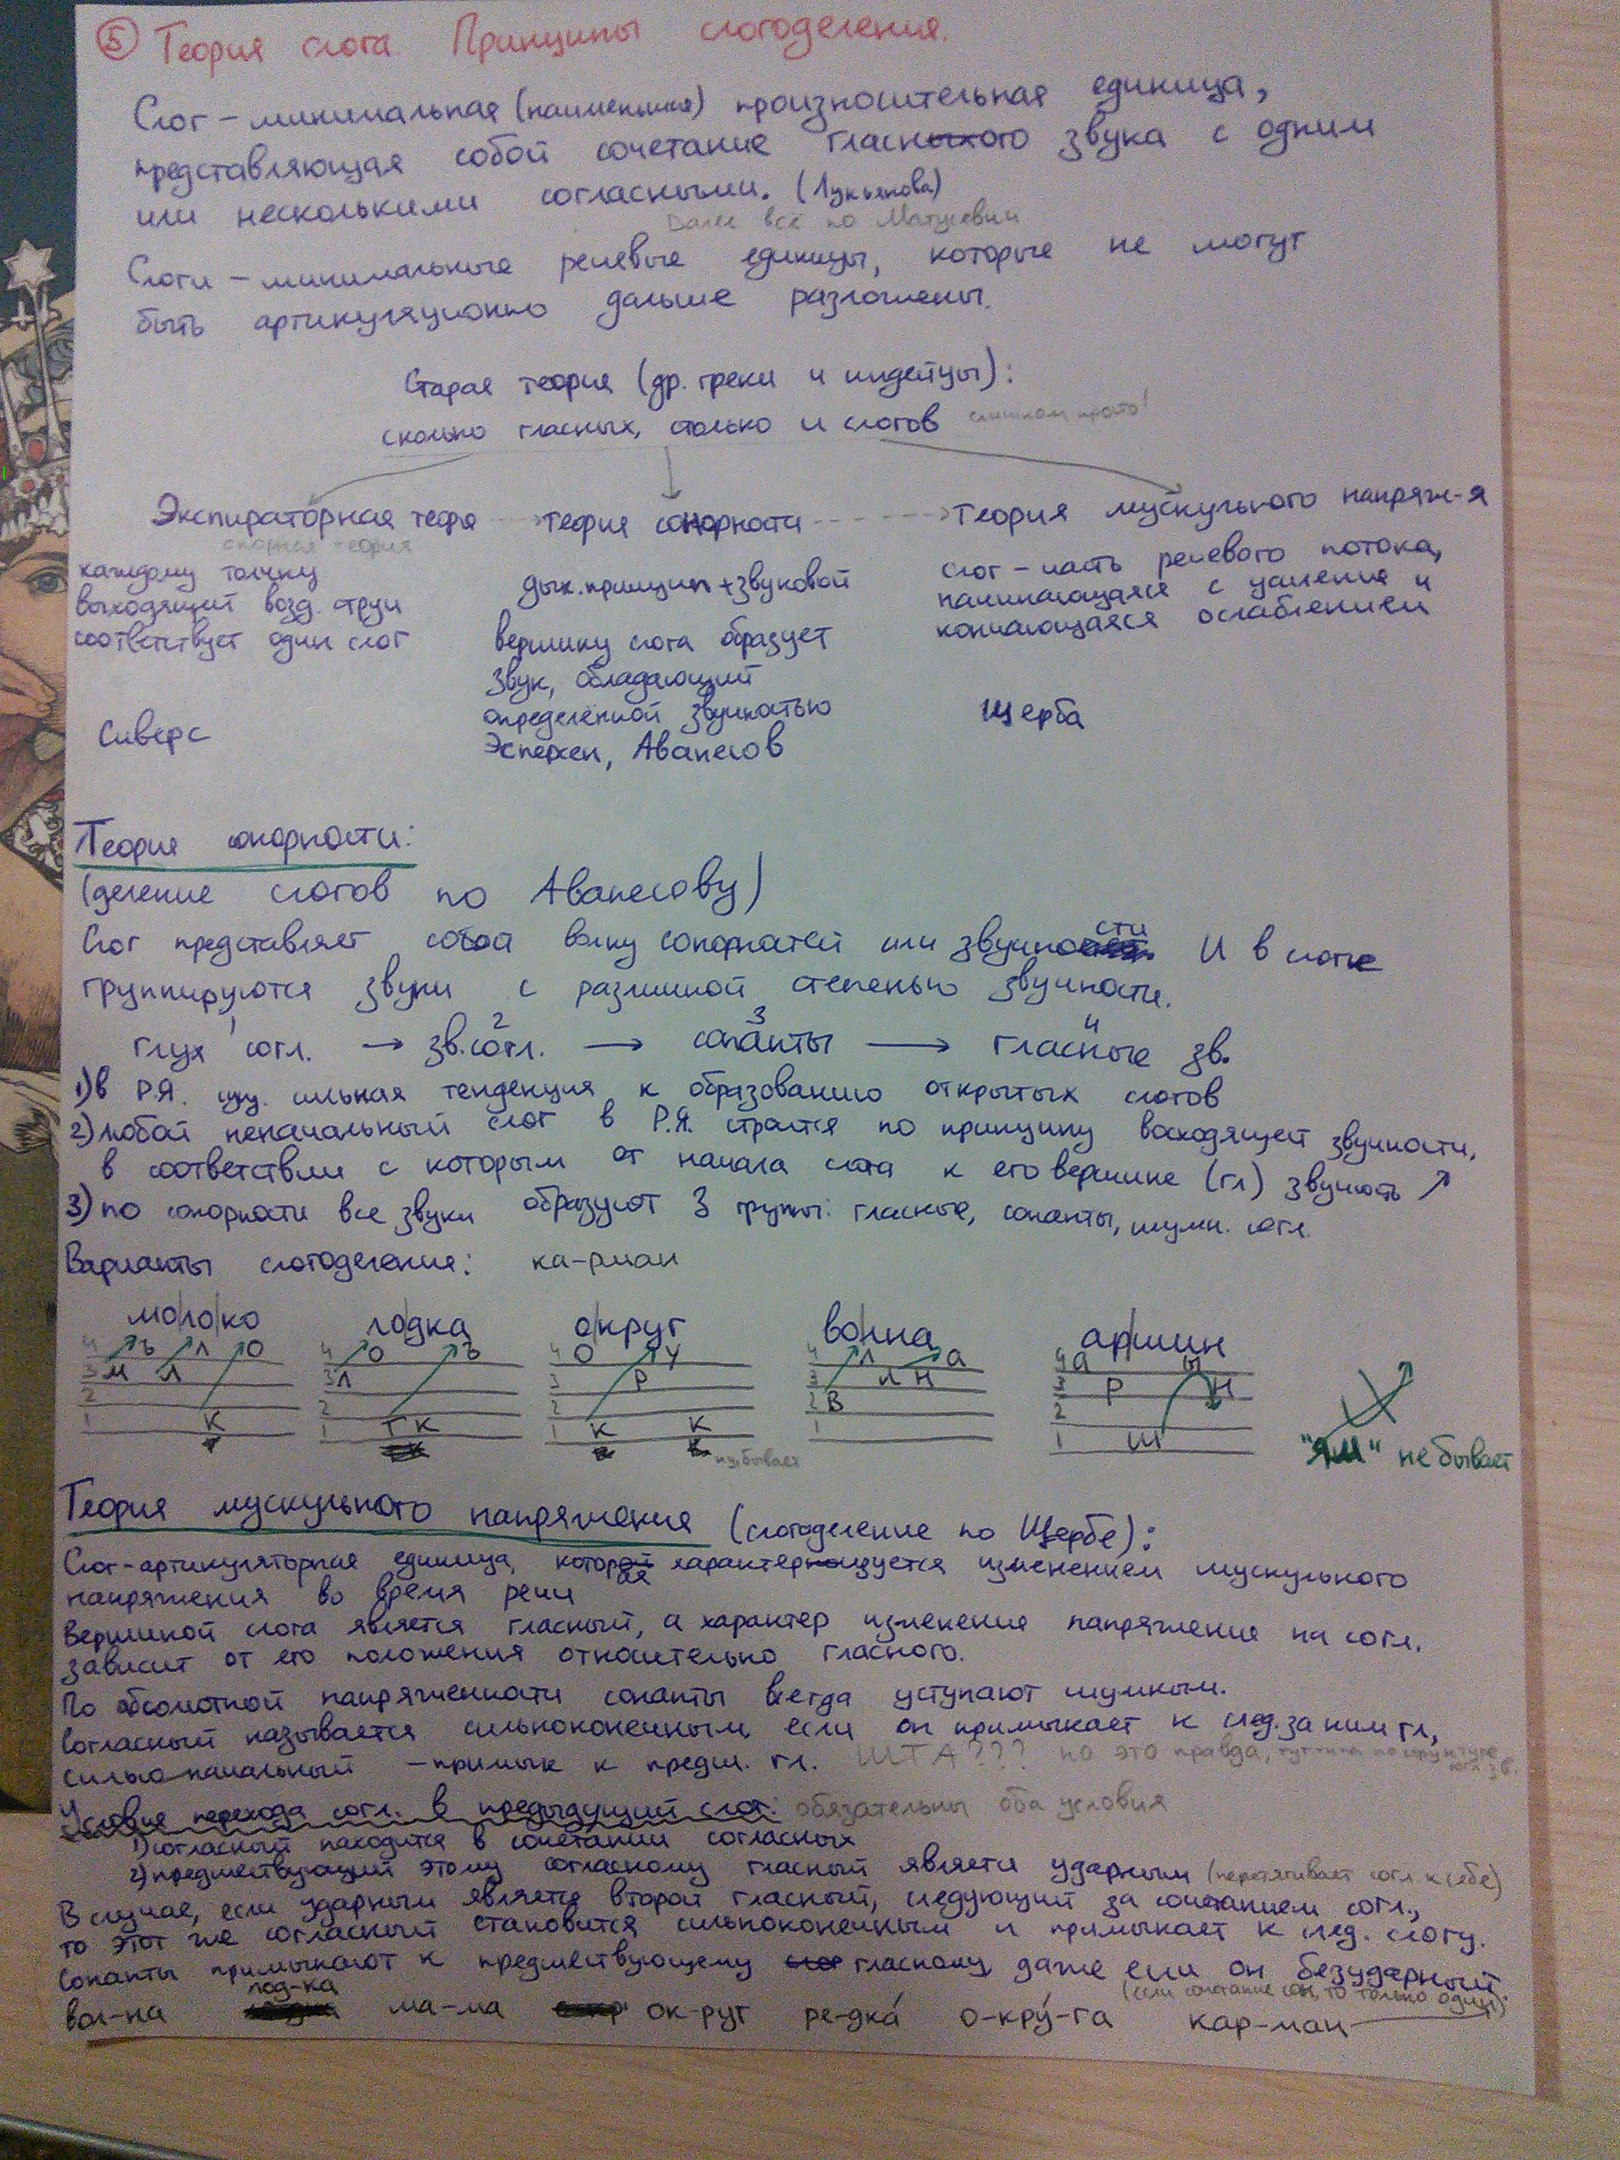 ⑤ Теория слога. Принципы слогоделения.
Слог – минимальная (наименьшая) произносительная единица,
представляющая собой сочетание гласного звука с одним
или несколькими согласными. (Лукьянова)
Далее всё по Матусевич
Слоги – минимальные речевые единицы, которые не могут
быть артикуляционно дальше разложены.
Старая теория (др. греки и индейцы):
сколько гласных, столько и слогов слишком просто!
Экспираторная теоря → теория сонорности → теория мускульного напряж-я
спорная теория
каждому толчку
выходящий возд. струи
соответствует один слог
Сиверс
дых. принцип + звуковой
вершину слога образует
звук, обладающий
определённой звучностью
Эсперсен, Аванесов
слог – часть речевого потока,
начинающаяся с усиления и
кончающаяся ослаблением
Щерба
Теория сонорности:
(деление слогов по Аванесову)
Слог представляет собой волну сонорностей или звучности И в слоге
группируются звуки с различной степенью звучности.
1 2 3 4
глух согл. → зв. согл. → сонанты → гласные зв.
1) в Р.Я. сущ. сильная тенденция к образованию открытых слогов
2) любой неначальный слог в Р.Я. строится по принципу восходящей звучности,
в соответствии с которым от начала слога к его вершине (гл) звучность ↗
3) по сонорности все звуки образуют 3 группы: гласные, сонанты, шумн. согл.
Варианты слогоделения: ка-рман
мо|ло|ко ло|дка о|круг во|лна ар|шин
4 ъ Λ О 4 О ъ 4 О У 4 Λ а 4 а ы
3 М Л 3 Л 3 Р 3 Л Н 3 Р Н
2 2 2 2 В 2
1 К 1 Т К 1 К К 1 1 Ш
"ЯМ" не бывает
Теория мускульного напряжения (слогоделение по Щербе):
Слог-артикуляторная единица, которая характеризуется изменением мускульного
напряжения во время речи
Вершиной слога является гласный, а характер изменение напряжение на согл.
зависит от его положения относительно гласного.
По абсолютной напряженности сонанты всегда уступают шумным.
Согласный называется сильноконечным, если он примыкает к след. за ним гл,
сильноначальный – примык к предш. гл. ШТА??? но это правда,
Условие перехода согл. в предыдущий слог: обязательны оба условия
1) согласный находится в сочетании согласных
2) предшествующий этому согласному гласный является ударным (перетягивает согл к себе)
В случае, если ударным является второй гласный, следующий за сочетанием согл.,
то этот же согласный становится сильноконечным и примыкает к след. слогу.
Сонанты примыкают к предшествующему гласному, даже если он безударный.
(если сочетание сон, то только один)
вол-на лод-ка ма-ма ок-руг ре-дка́ о-кру́-га кар-ман